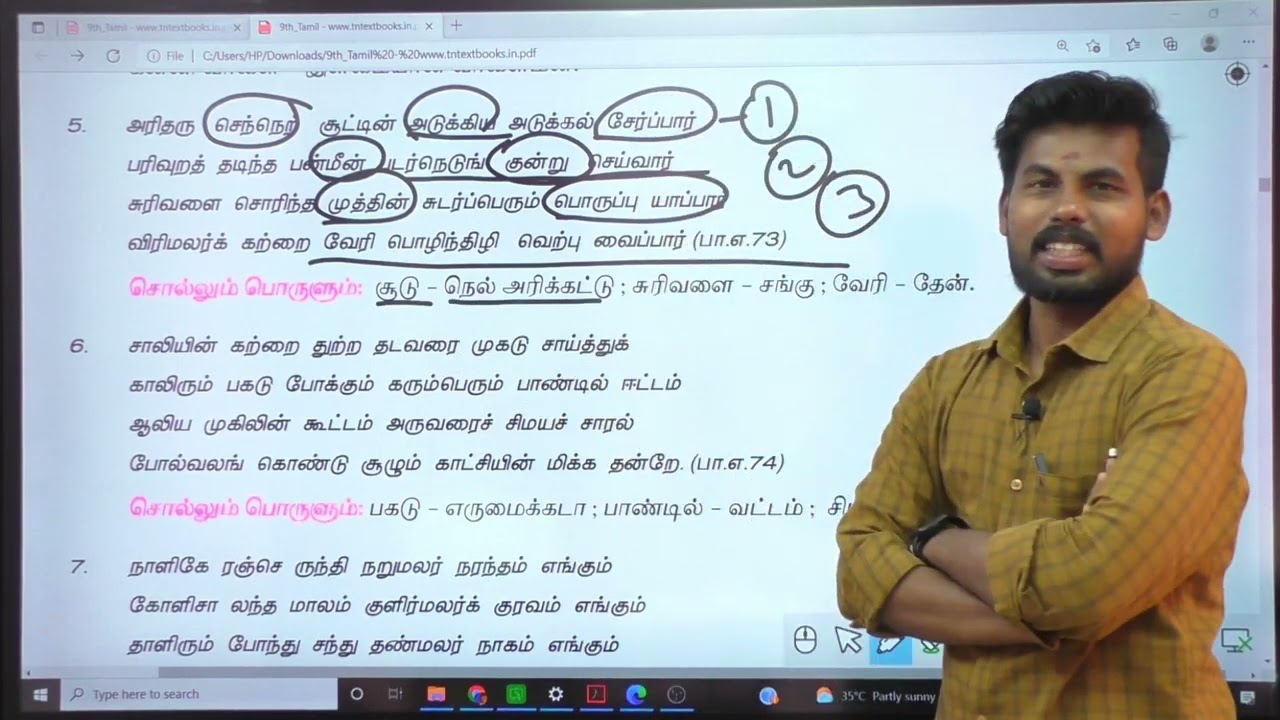 9th_Tamil - www.tntextbooks.in.p
9th_Tamil - www.tntextbooks.in.
File | C:/Users/HP/Downloads/9th_Tamil%20-%20www.tntextbooks.in.pdf
5. அரிதரு செந்நெற் சூட்டின் அடுக்கிய அடுக்கல் சேர்ப்பார் – 1
பரிவுறத் தடிந்த பன்மீன் படர்நெடுங் குன்று செய்வார் 2
சுரிவளை சொரிந்த முத்தின் சுடர்ப்பெரும் பொருப்பு யாப்பார் 3
விரிமலர்க் கற்றை வேரி பொழிந்திழி வெற்பு வைப்பார் (பா.எ.73)
சொல்லும் பொருளும்: சூடு – நெல் அரிக்கட்டு ; சுரிவளை – சங்கு ; வேரி – தேன்.
6. சாலியின் கற்றை துற்ற தடவரை முகடு சாய்த்துக்
காலிரும் பகடு போக்கும் கரும்பெரும் பாண்டில் ஈட்டம்
ஆலிய முகிலின் கூட்டம் அருவரைச் சிமயச் சாரல்
போல்வலங் கொண்டு சூழும் காட்சியின் மிக்க தன்றே. (பா.எ.74)
சொல்லும் பொருளும்: பகடு – எருமைக்கடா ; பாண்டில் – வட்டம் ;
7. நாளிகே ரஞ்செ ருந்தி நறுமலர் நரந்தம் எங்கும்
கோளிசா லந்த மாலம் குளிர்மலர்க் குரவம் எங்கும்
தாளிரும் போந்து சந்து தண்மலர் நாகம் எங்கும்
Type here to search
35°C Partly sunny